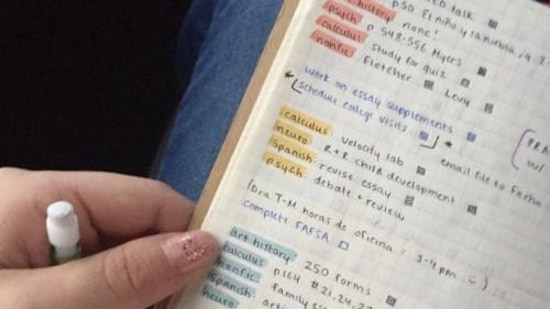 talk
history: p50 El niño y la niebla
psych: none!
calculus: p 548-556 Myers
nonfic: study for quiz
Fletcher Levy
work on essay supplements
schedule college visits
calculus: velocity lab
neuro: R+R child development
spanish: revise essay
psych: debate + review
email
Dra T-M horas de oficina: 3-4 pm
complete FAFSA
art history: 250 forms
calculus: p164 #21, 24, 27
nonfic: family
spanish:
neuro: